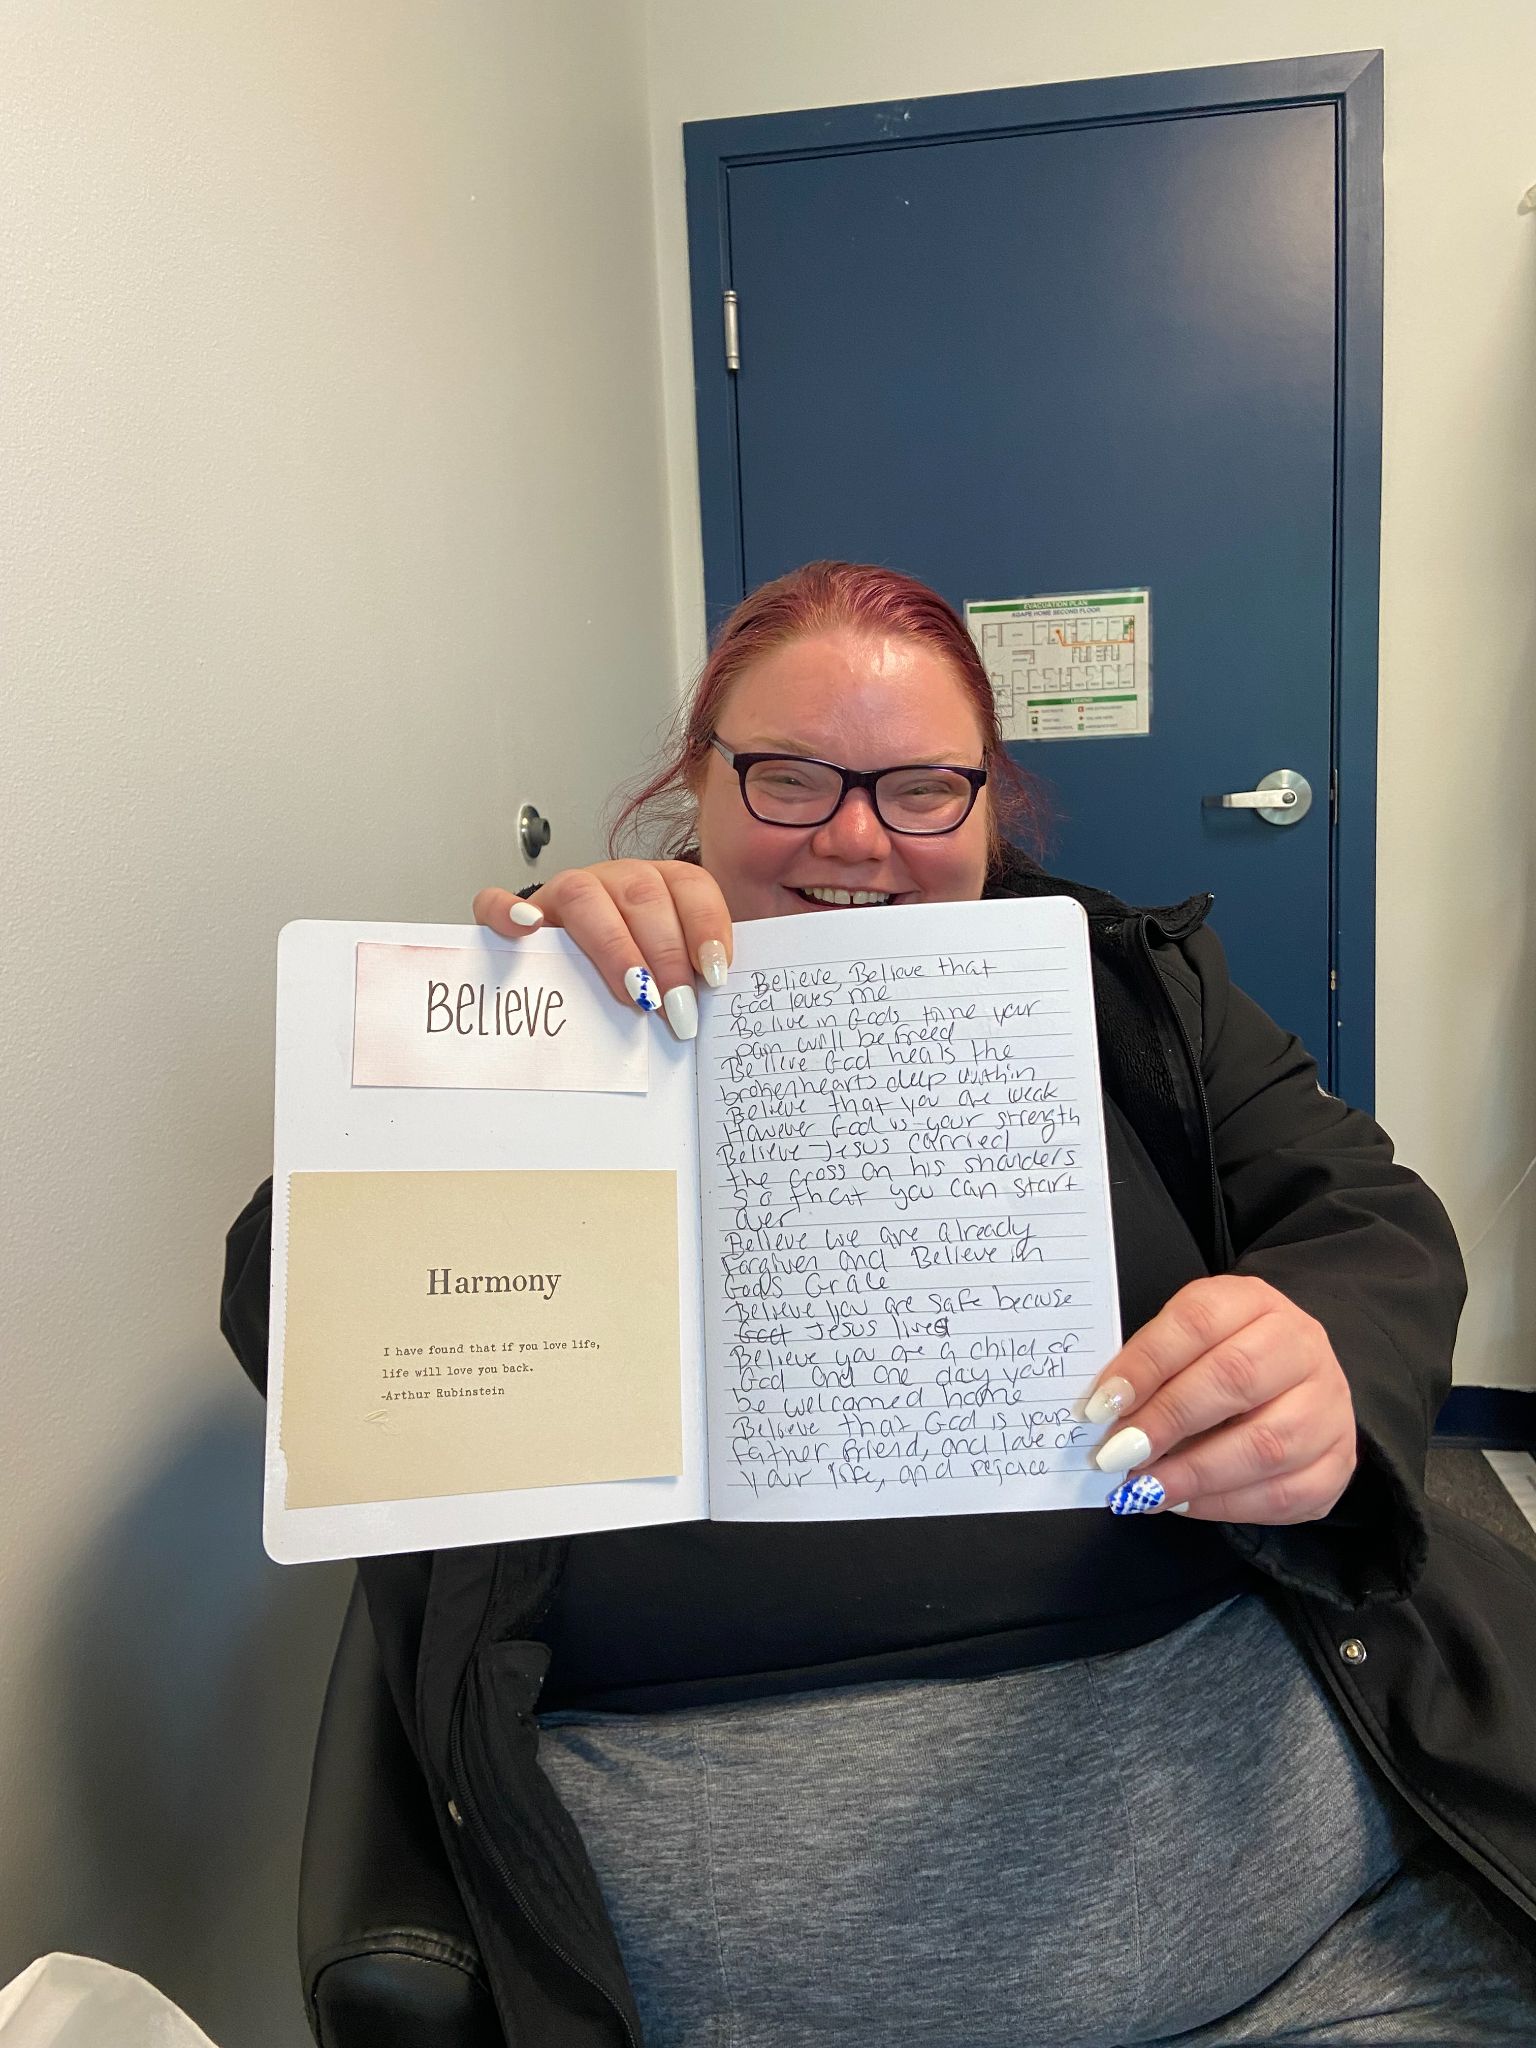 EVACUATION PLAN
AGAPE HOME SECOND FLOOR
LEGEND
BELIEVE
Harmony
I have found that if you love life,
life will love you back.
-Arthur Rubinstein
Believe, Believe that
God loves me
Belive in Gods time your
pain will be freed
Believe God heals the
brokenhearts deep within
Believe that you are weak
However God is your strength
Believe Jesus carried
the cross on his shoulders
so that you can start
over
Believe we are already
Forgiven and Believe in
Gods Grace
Believe you are safe because
God Jesus lives
Believe you are a child of
God and one day you'll
be welcomed home
Believe that God is your
father, friend, and love of
your life, and rejoice